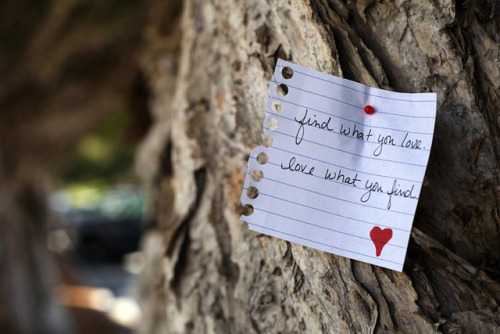 find what you love.
love what you find.